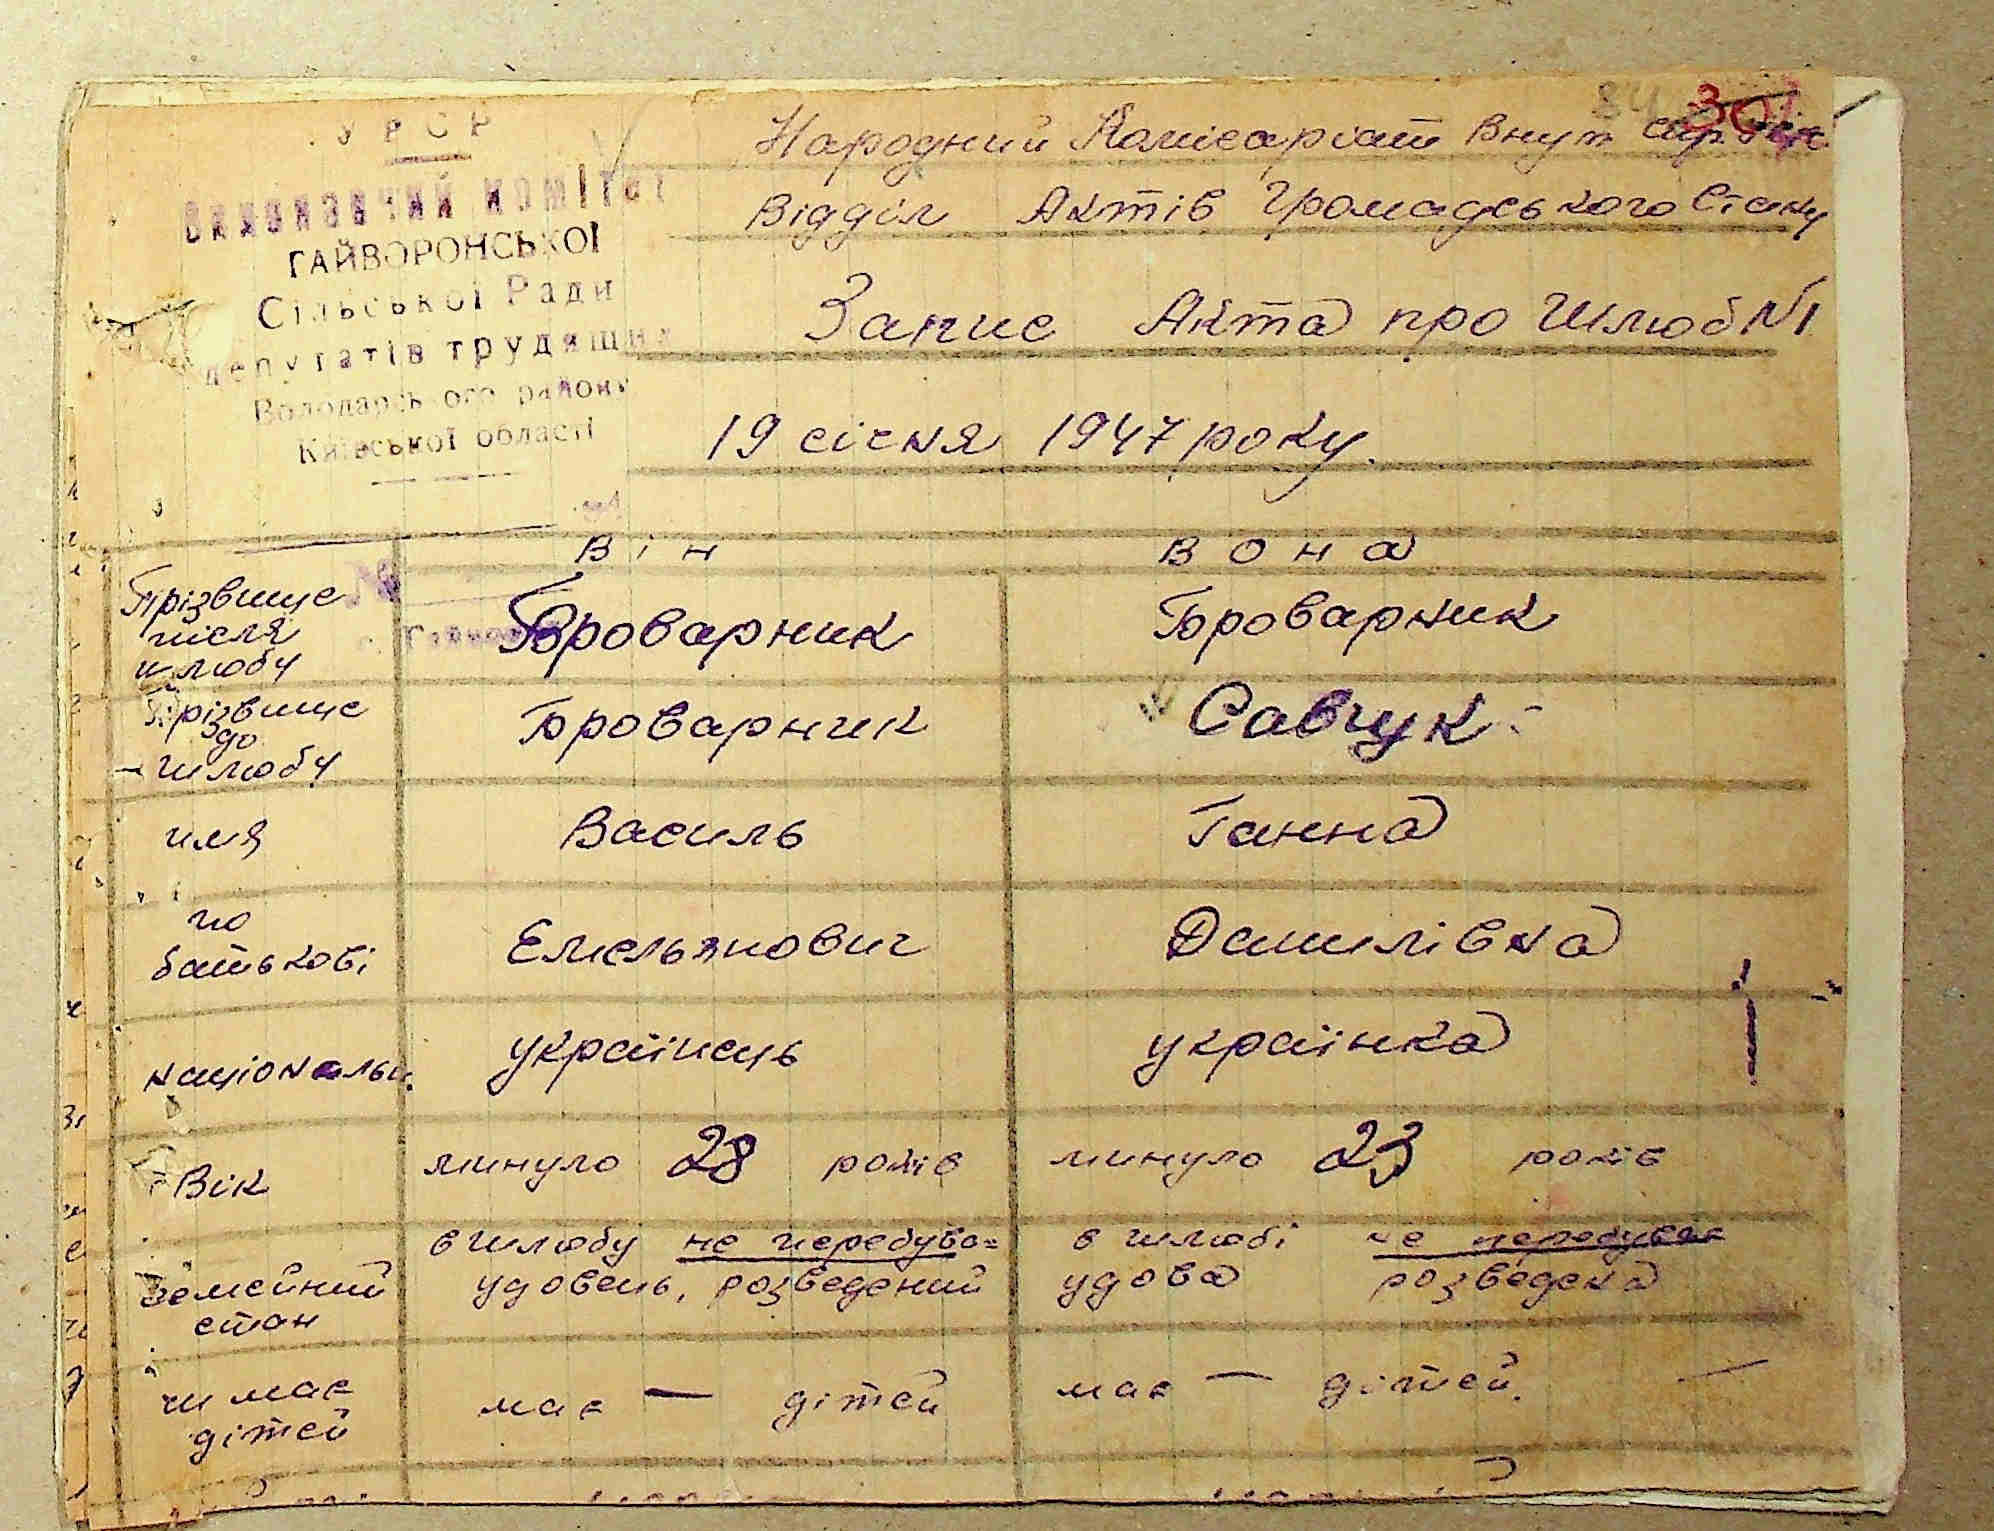 УРСР
Виконавчий комітет
ГАЙВОРОНСЬКОЇ
Сільської Ради
депутатів трудящих
Володарського району
Київської області
Народний Комісаріат Внут. Спр.
Відділ Актів Громадського Стану
Запис Акта про Шлюб №1
19 січня 1947 року.
Він Вона
Прізвище після шлюбу Броварник Броварник
Прізвище до шлюбу Броварник Савчук
имя Василь Ганна
по батькові Емельянович Данилівна
національн. українець українка
Вік минуло 28 років минуло 23 років
Земейний стан в шлюбу не перебува= в шлюбі не перебуває
удовець, розведений удова розведена
чи має дітей має — дітей має — дітей. —